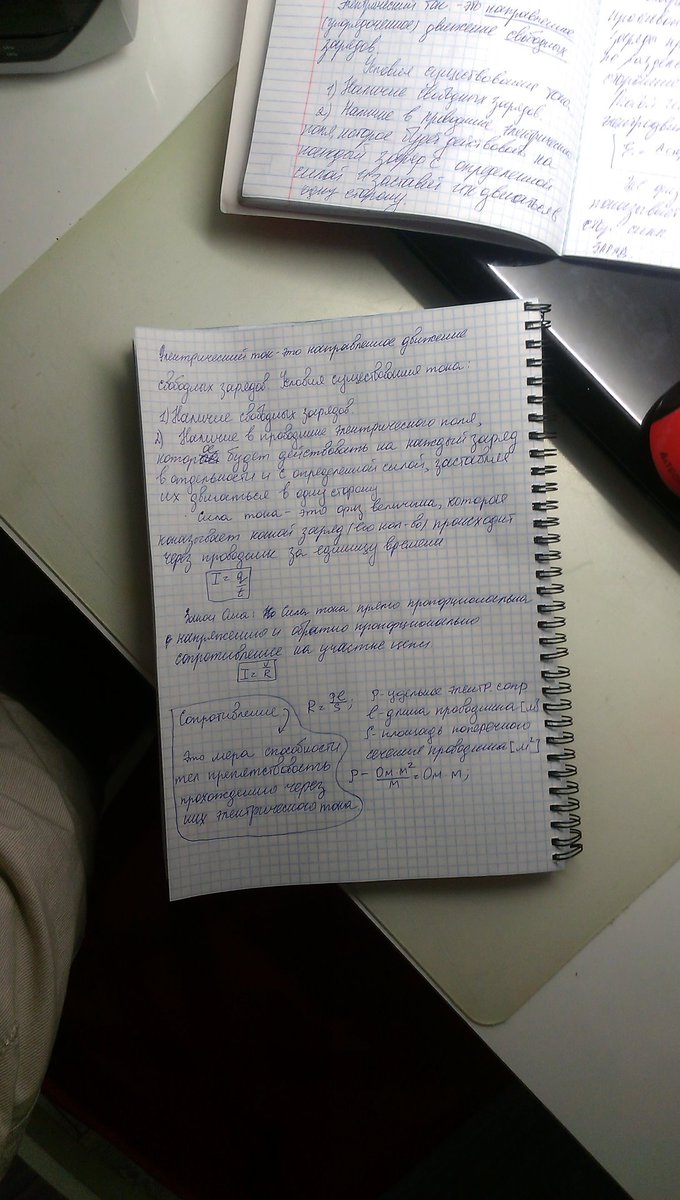 Электрический ток - это направленное
(упорядоченное) движение свободных
зарядов.
Условия существования тока
1) Наличие свободных зарядов.
2) Наличие в проводнике электрического
поля, которое будет действовать на
каждый заряд с определенной
силой и заставит их двигаться в
одну сторону.
Электрический ток - это направленное движение
свободных зарядов. Условия существования тока:
1) Наличие свободных зарядов
2) Наличие в проводнике электрического поля,
которое будет действовать на каждый заряд
в отдельности и с определенной силой, заставляя
их двигаться в одну сторону
Сила тока - это физ величина, которая
показывает какой заряд (его кол-во) происходит
через проводник за единицу времени
I = q/t
Закон Ома: Сила тока прямо пропорциональна
напряжению и обратно пропорционально
сопротивление на участке цепи
I = U/R
Сопротивление
Это мера способности
тел препятствовать
прохождению через
них электрического тока
R = ρl/S; ρ - удельное электр. сопр
l - длина проводника [м]
S - площадь поперечного
сечение проводника [м²]
ρ - Ом·м²/м = Ом·м;